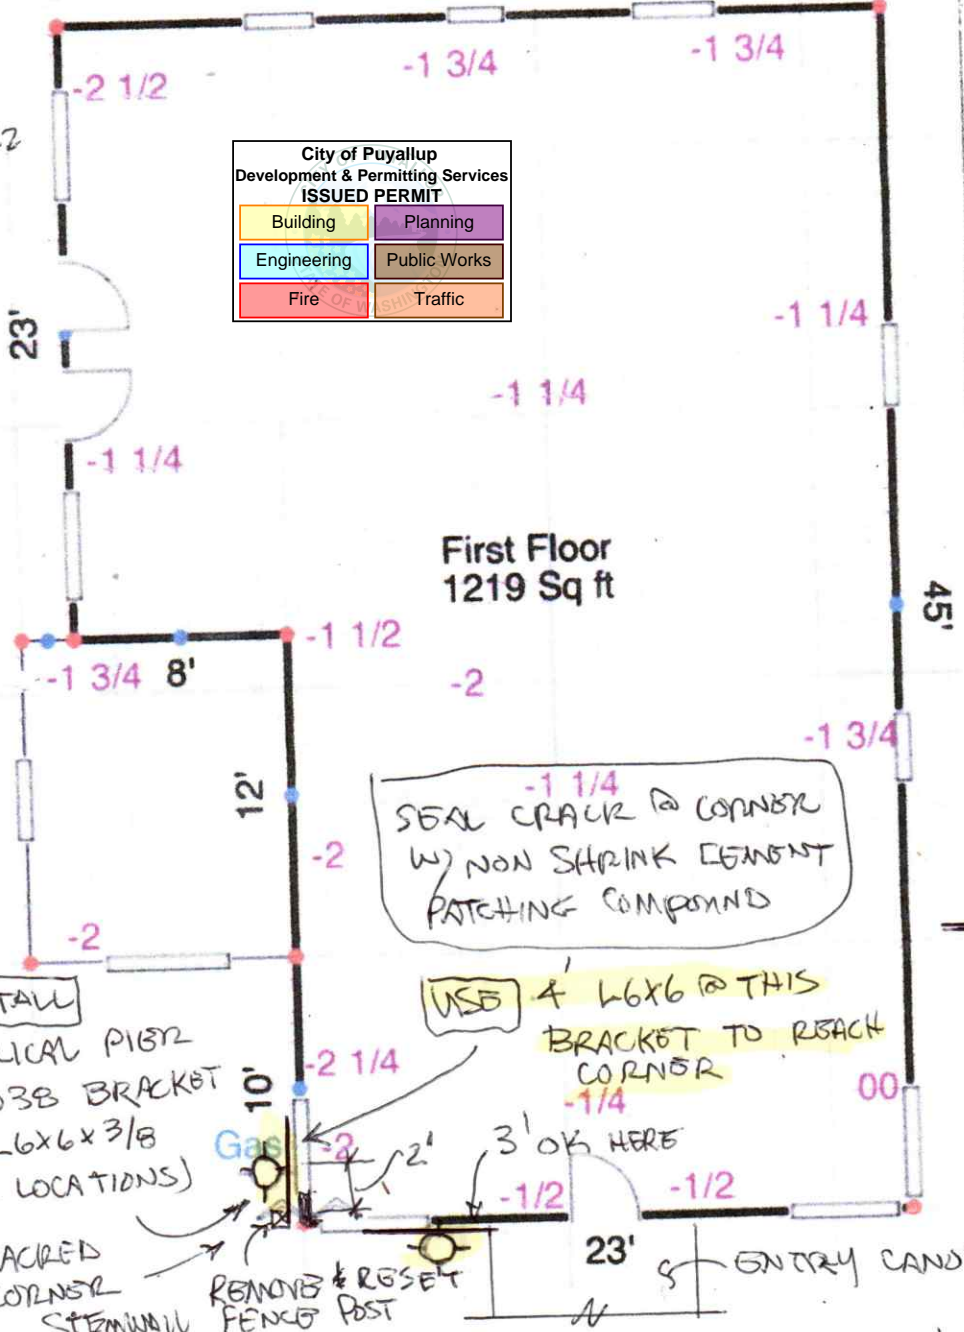 -2 1/2
-1 3/4
-1 3/4
City of Puyallup
Development & Permitting Services
ISSUED PERMIT
Building Planning
Engineering Public Works
Fire Traffic
23'
-1 1/4
-1 1/4
-1 1/4
First Floor
1219 Sq ft
45'
-1 1/2
-1 3/4
8'
-2
-1 3/4
12'
-1 1/4
SEAL CRACK @ CORNER
W/ NON SHRINK CEMENT
PATCHING COMPOUND
-2
-2
USE 4' L6X6 @ THIS
BRACKET TO REACH
CORNER
TALL
LICAL PIER
038 BRACKET
L6X6X3/8
LOCATIONS)
10'
-2 1/4
-1/4
00
Gas
-2
2'
3' OK HERE
-1/2
-1/2
23'
ACKED
CORNER
STEMWALL
REMOVE & RESET
FENCE POST
ENTRY CANO